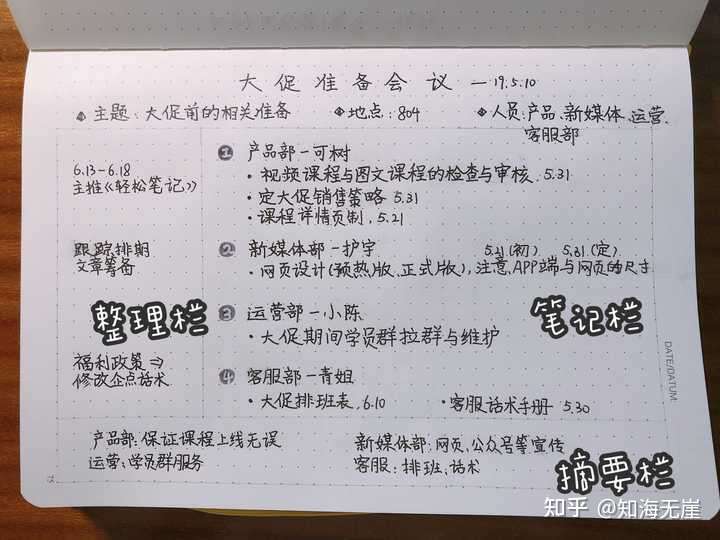 大促准备会议 — 19.5.10
主题：大促前的相关准备 地点：804 人员：产品、新媒体、运营、
客服部
6.13-6.18
主推《轻松笔记》
① 产品部-可树
· 视频课程与图文课程的检查与审核. 5.31
· 定大促销售策略 5.31
· 课程详情页制. 5.21
跟踪排期
文章筹备
② 新媒体部-护宇 5.21(初) 5.31(定)
· 网页设计(预热版、正式版), 注意APP端与网页的尺寸
整理栏
③ 运营部-小陈
· 大促期间学员群拉群与维护
笔记栏
福利政策⇒
修改企点话术
④ 客服部-青姐
· 大促排班表. 6.10 · 客服话术手册 5.30
DATE/DATUM:
产品部：保证课程上线无误 新媒体部：网页、公众号等宣传
运营：学员群服务 客服：排班、话术
摘要栏
知乎 @知海无崖